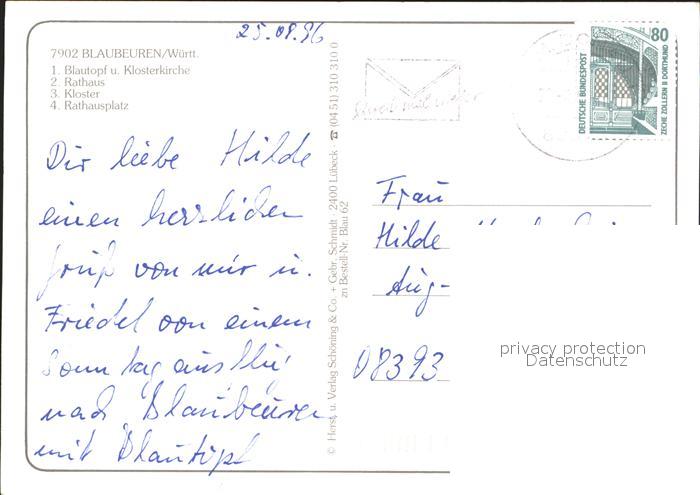 25.08.96
7902 BLAUBEUREN/Württ.
1. Blautopf u. Klosterkirche
2. Rathaus
3. Kloster
4. Rathausplatz
Dir liebe Hilde
einen herzlichen
Gruß von mir u.
Friedel von einem
Sonntagausflug
nach Blaubeuren
mit Blautopf
© Herst. u. Verlag Schöning & Co. + Gebr. Schmidt · 2400 Lübeck ☎ (04 51) 310 310 0
zu Bestell-Nr. Blau 62
Schreib mal wieder
80
DEUTSCHE BUNDESPOST
ZECHE ZOLLERN II DORTMUND
Frau
Hilde
Aug-
08393
privacy protection
Datenschutz